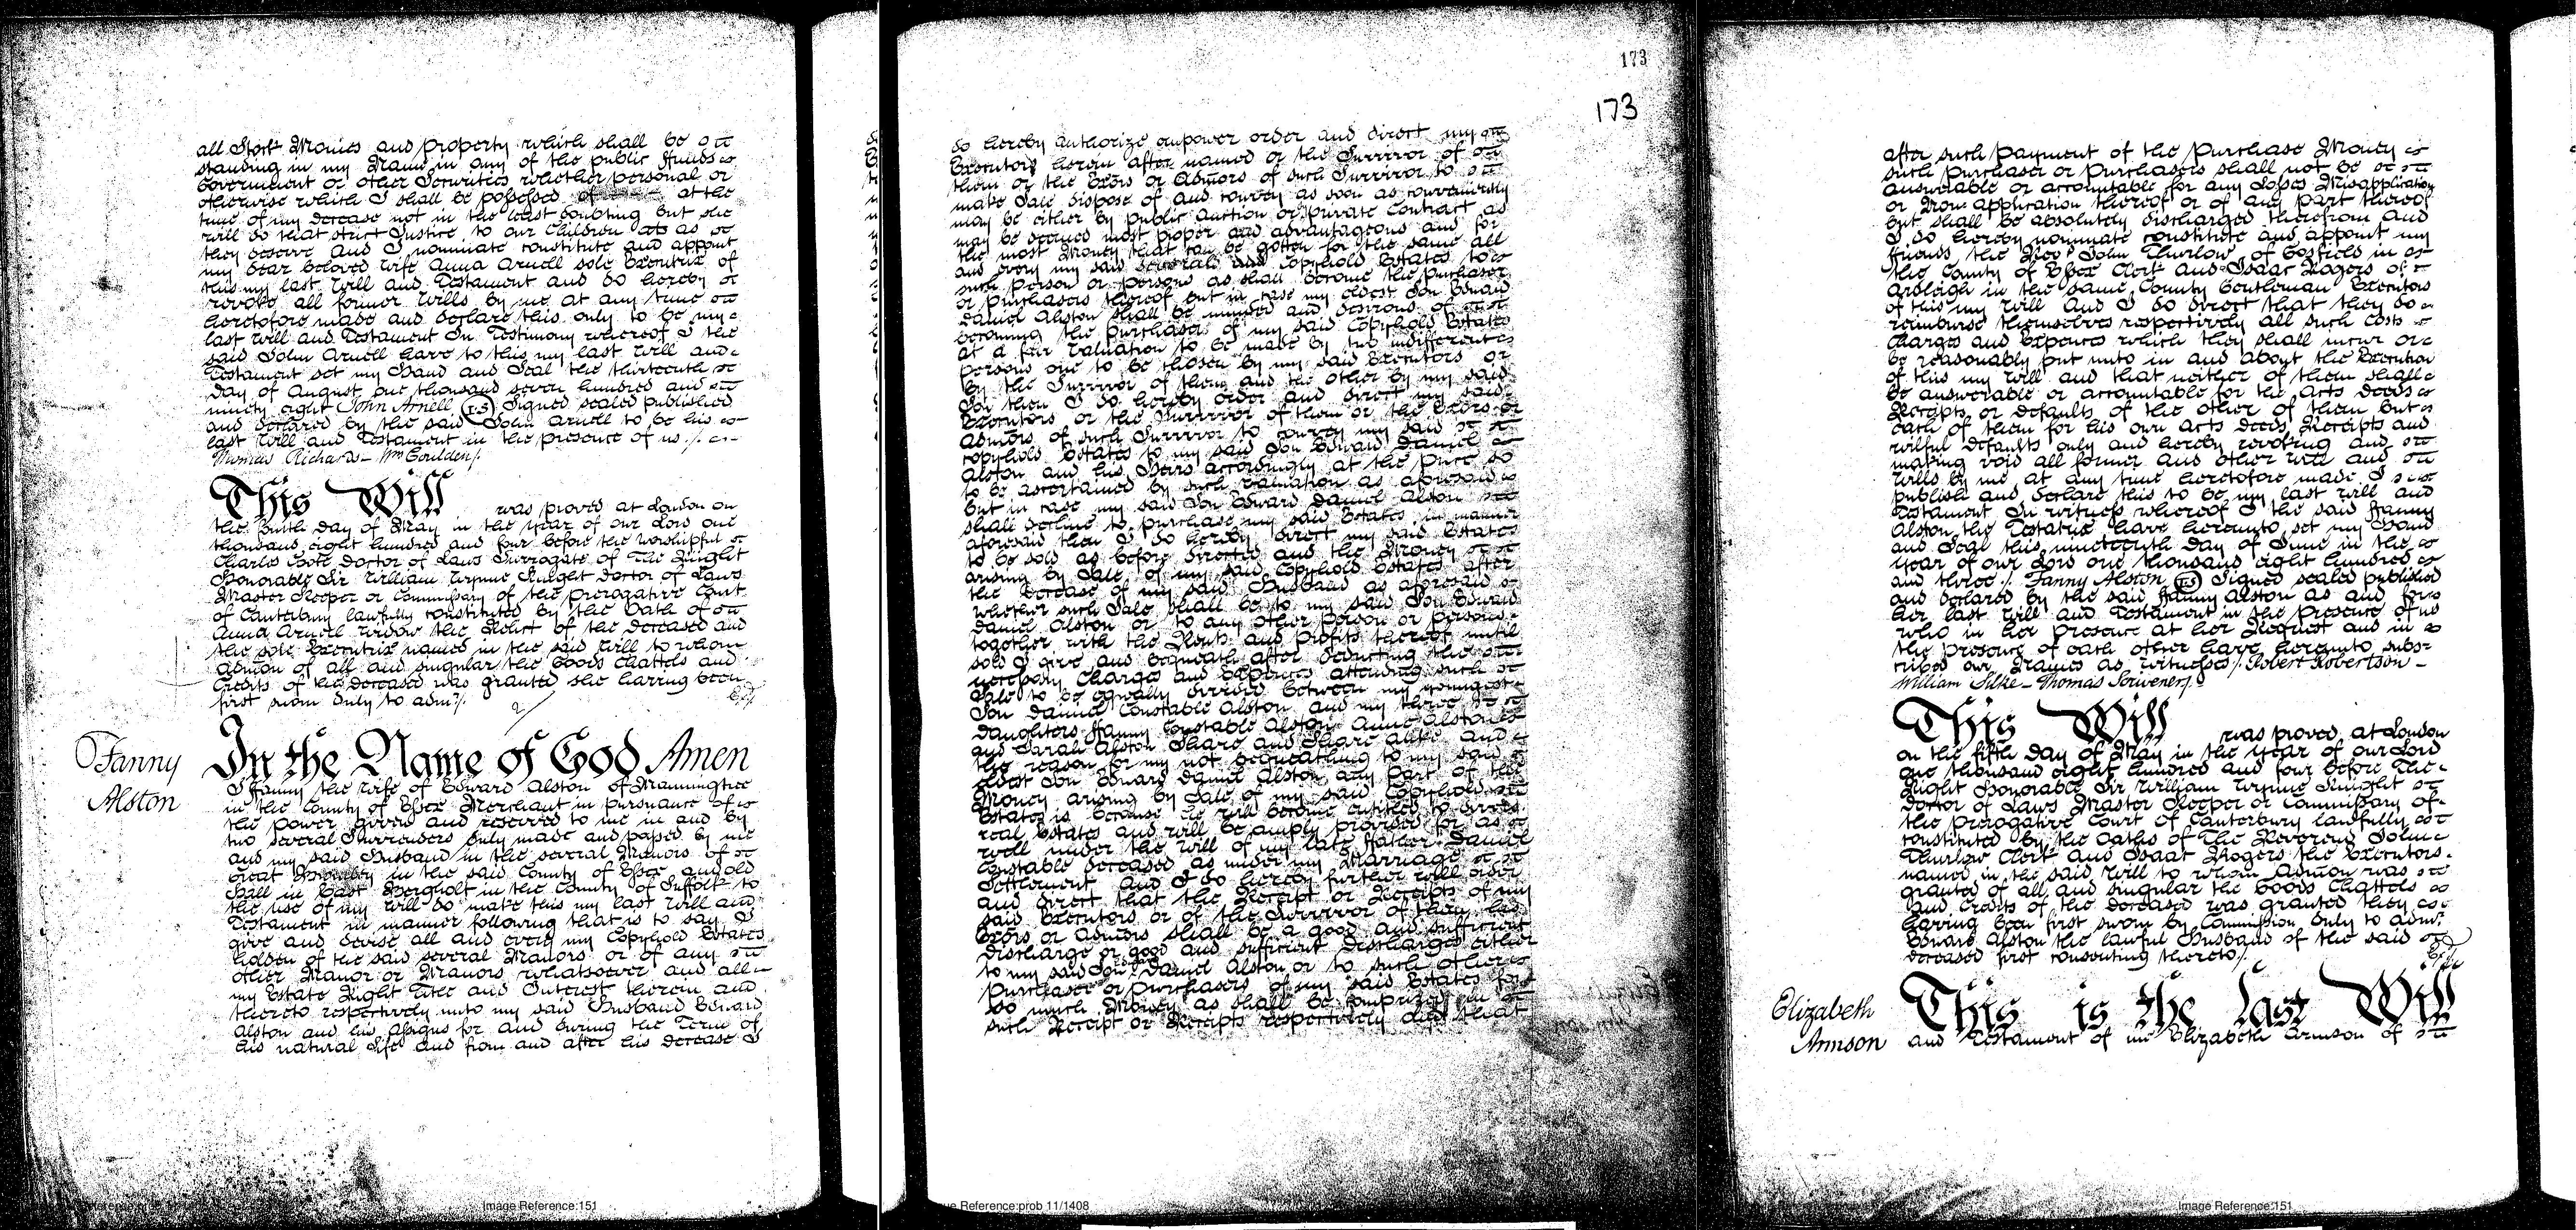 all Stock Monies and property which shall be
standing in my Name in any of the public ffunds
Government or other Securities whether personal or
otherwise which I shall be possessed of at the
time of my decease not in the least doubting but she
will do that strict Justice to our Children as
they deserve And I nominate constitute and appoint
my dear beloved wife Anna Arnell sole Executrix of
this my last Will and Testament and do hereby
revoke all former Wills by me at any time
heretofore made and declare this only to be my
last Will and Testament In Testimony whereof I the
said John Arnell have to this my last Will and
Testament set my Hand and Seal the thirteenth
day of August one thousand seven hundred and
ninety eight John Arnell (LS) Signed sealed published
and declared by the said John Arnell to be his
last Will and Testament in the presence of us /.
Thomas Richards – Wm Goulden /.
This Will was proved at London on
the day of May in the year of our Lord one
thousand eight hundred and four before the worshipful
Charles Coote Doctor of Laws Surrogate of The Right
Honorable Sir William Wynne Knight Doctor of Laws
Master Keeper or Commissary of the prerogative Court
of Canterbury lawfully constituted by the Oath of
Anna Arnell widow the Relict of the deceased and
the sole Executrix named in the said Will to whom
admon of all and singular the Goods Chattels and
Credits of the deceased was granted she having been
first sworn duly to admr /.
Fanny Alston
In the Name of God Amen
I Fanny the wife of Edward Alston of Manningtree
in the County of Essex Merchant in pursuance of
the power given and reserved to me in and by
two several Surrenders duly made and passed by me
and my said Husband in the several Manors of
Great Bromley in the said County of Essex and Old
Hall in East Bergholt in the County of Suffolk to
the use of my Will do make this my last Will and
Testament in manner following that is to say I
give and devise all and every my Copyhold Estates
holden of the said several Manors or of any
other Manor or Manors whatsoever and all
my Estate Right Title and Interest therein and
thereto respectively unto my said Husband Edward
Alston and his Assigns for and during the Term of
his natural Life and from and after his decease I
173
173
do hereby authorize empower order and direct my
Executors herein after named or the Survivor of
them or the Exors or Admors of such Survivor to
make Sale dispose of and convey as soon as conveniently
may be either by public auction or private Contract as
may be deemed most proper and advantageous and for
the most Money that can be gotten for the same all
and every my said several Copyhold Estates to
such person or persons as shall become the purchaser
or purchasers thereof but in case my eldest Son Edward
Daniel Alston shall be minded and desirous of
becoming the purchaser of my said Copyhold Estates
at a fair Valuation to be made by two indifferent
persons one to be chosen by my said Executors or
by the Survivor of them and the other by my said
Son then I do hereby order and direct my said
Executors or the Survivor of them or the Exors or
Admors of such Survivor to convey my said
copyhold Estates to my said Son Edward Daniel
Alston and his Heirs accordingly at the price so
to be ascertained by such Valuation as aforesaid
but in case my said Son Edward Daniel Alston
shall decline to purchase my said Estates in manner
aforesaid then I do hereby direct my said Estates
to be sold as before directed and the Money
arising by Sale of my said Copyhold Estates after
the decease of my said Husband as aforesaid
whether such Sale shall be to my said Son Edward
Daniel Alston or to any other person or persons
together with the Rents and Profits thereof until
sold I give and bequeath after deducting the
necessary Charges and expences attending such
Sale to be equally divided between my youngest
Son Daniel Constable Alston and my three
daughters Fanny Constable Alston Anne Alston
and Sarah Alston Share and Share alike and
the reason for my not bequeathing to my said
eldest Son Edward Daniel Alston any part of the
Money arising by Sale of my said Copyhold
Estates is because he will become entitled to divers
real Estates and will be amply provided for as
well under the Will of my late ffather Daniel
Constable deceased as under my Marriage
Settlement And I do hereby further will order
and direct that the Receipt or Receipts of my
said Executors or of the Survivor of them his
Exors or Admors shall be a good and sufficient
discharge or good and sufficient discharges either
to my said Son Edward Daniel Alston or to such other
purchaser or purchasers of my said Estates for
so much Money as shall be comprized in
such Receipt or Receipts respectively and that
after such payment of the Purchase Money
such purchaser or purchasers shall not be
answerable or accountable for any Losses Misapplication
or Non-application thereof or of any part thereof
but shall be absolutely discharged therefrom And
I do hereby nominate constitute and appoint my
friends the Revd John Thurlow of Gosfield in
the County of Essex Clerk and Isaac Rogers of
Ardleigh in the same County Gentleman Executors
of this my Will And I do direct that they do
reimburse themselves respectively all such Costs
Charges and Expences which they shall incur or
be reasonably put unto in and about the Execution
of this my Will and that neither of them shall
be answerable or accountable for the Acts Deeds
Receipts or defaults of the other of them but
each of them for his own Acts Deeds Receipts and
wilful defaults only and hereby revoking and
making void all former and other Will and
Wills by me at any time heretofore made I
publish and declare this to be my last Will and
Testament In witness whereof I the said Fanny
Alston the Testatrix have hereunto set my Hand
and Seal this nineteenth day of June in the
year of our Lord one thousand eight hundred
and three /. Fanny Alston (LS) Signed sealed published
and declared by the said Fanny Alston as and for
her last Will and Testament in the presence of us
who in her presence at her Request and in
the presence of each other have hereunto subs-
cribed our Names as witnesses /. Robert Robertson –
William Silke – Thomas Scrivener /.
This Will was proved at London
on the fifth day of May in the year of our Lord
one thousand eight hundred and four before The
Right Honorable Sir William Wynne Knight
Doctor of Laws Master Keeper or Commissary of
the prerogative Court of Canterbury lawfully
constituted by the Oaths of The Reverend John
Thurlow Clerk and Isaac Rogers the Executors
named in the said Will to whom admon was
granted of all and singular the Goods Chattels
and Credits of the deceased was granted they
having been first sworn by Commission duly to admr
Edward Alston the lawful Husband of the said
deceased first consenting thereto /.
Elizabeth Armson
This is the last Will
and Testament of me Elizabeth Armson of
Image Reference:151
Reference:prob 11/1408
Image Reference:151